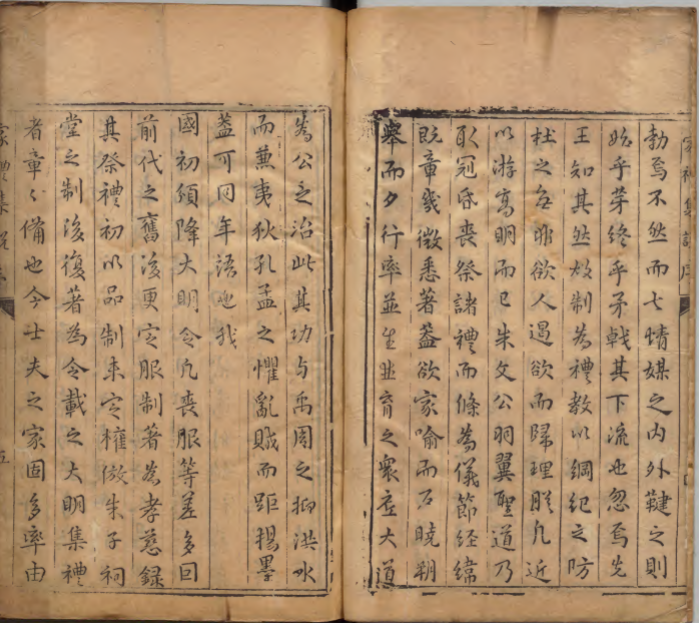 勃焉不然而七情媒之内外鞬之則
始乎芽終乎矛戟其下流也忽焉先
王知其然故制為禮教以綱紀之防
杜之每非欲人遏欲而歸理脱凡近
以游高明而已朱文公羽翼聖道乃
取冠昏喪祭諸禮而條為儀節經緯
既章幾微悉著蓋欲家喻而戶曉朝
舉而夕行率並生並育之衆在大道
為公之治此其功与禹周之抑洪水
而兼夷狄孔孟之懼亂賊而距揚墨
蓋可同年語也我
國初頒降大明令凡喪服等差多因
前代之舊後更定服制著為孝慈録
其祭禮初以品制未定權倣朱子祠
堂之制後復著為令載之大明集禮
者章々備也今士夫之家固多率由
五